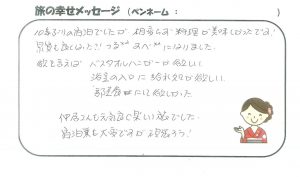 旅の幸せメッセージ (ペンネーム : )
10年ぶりの宿泊でしたが 相変らず お料理が美味しかったです!
泉質も良くなった?! つるつる すべすべになりました。
欲を言えば バスタオルハンガーが欲しい
浴室の入口に 給水器が欲しい
部屋 にして欲しかった
仲居さんも元気良く楽しい旅でした。
宿泊業も大変ですが 頑張ろう!